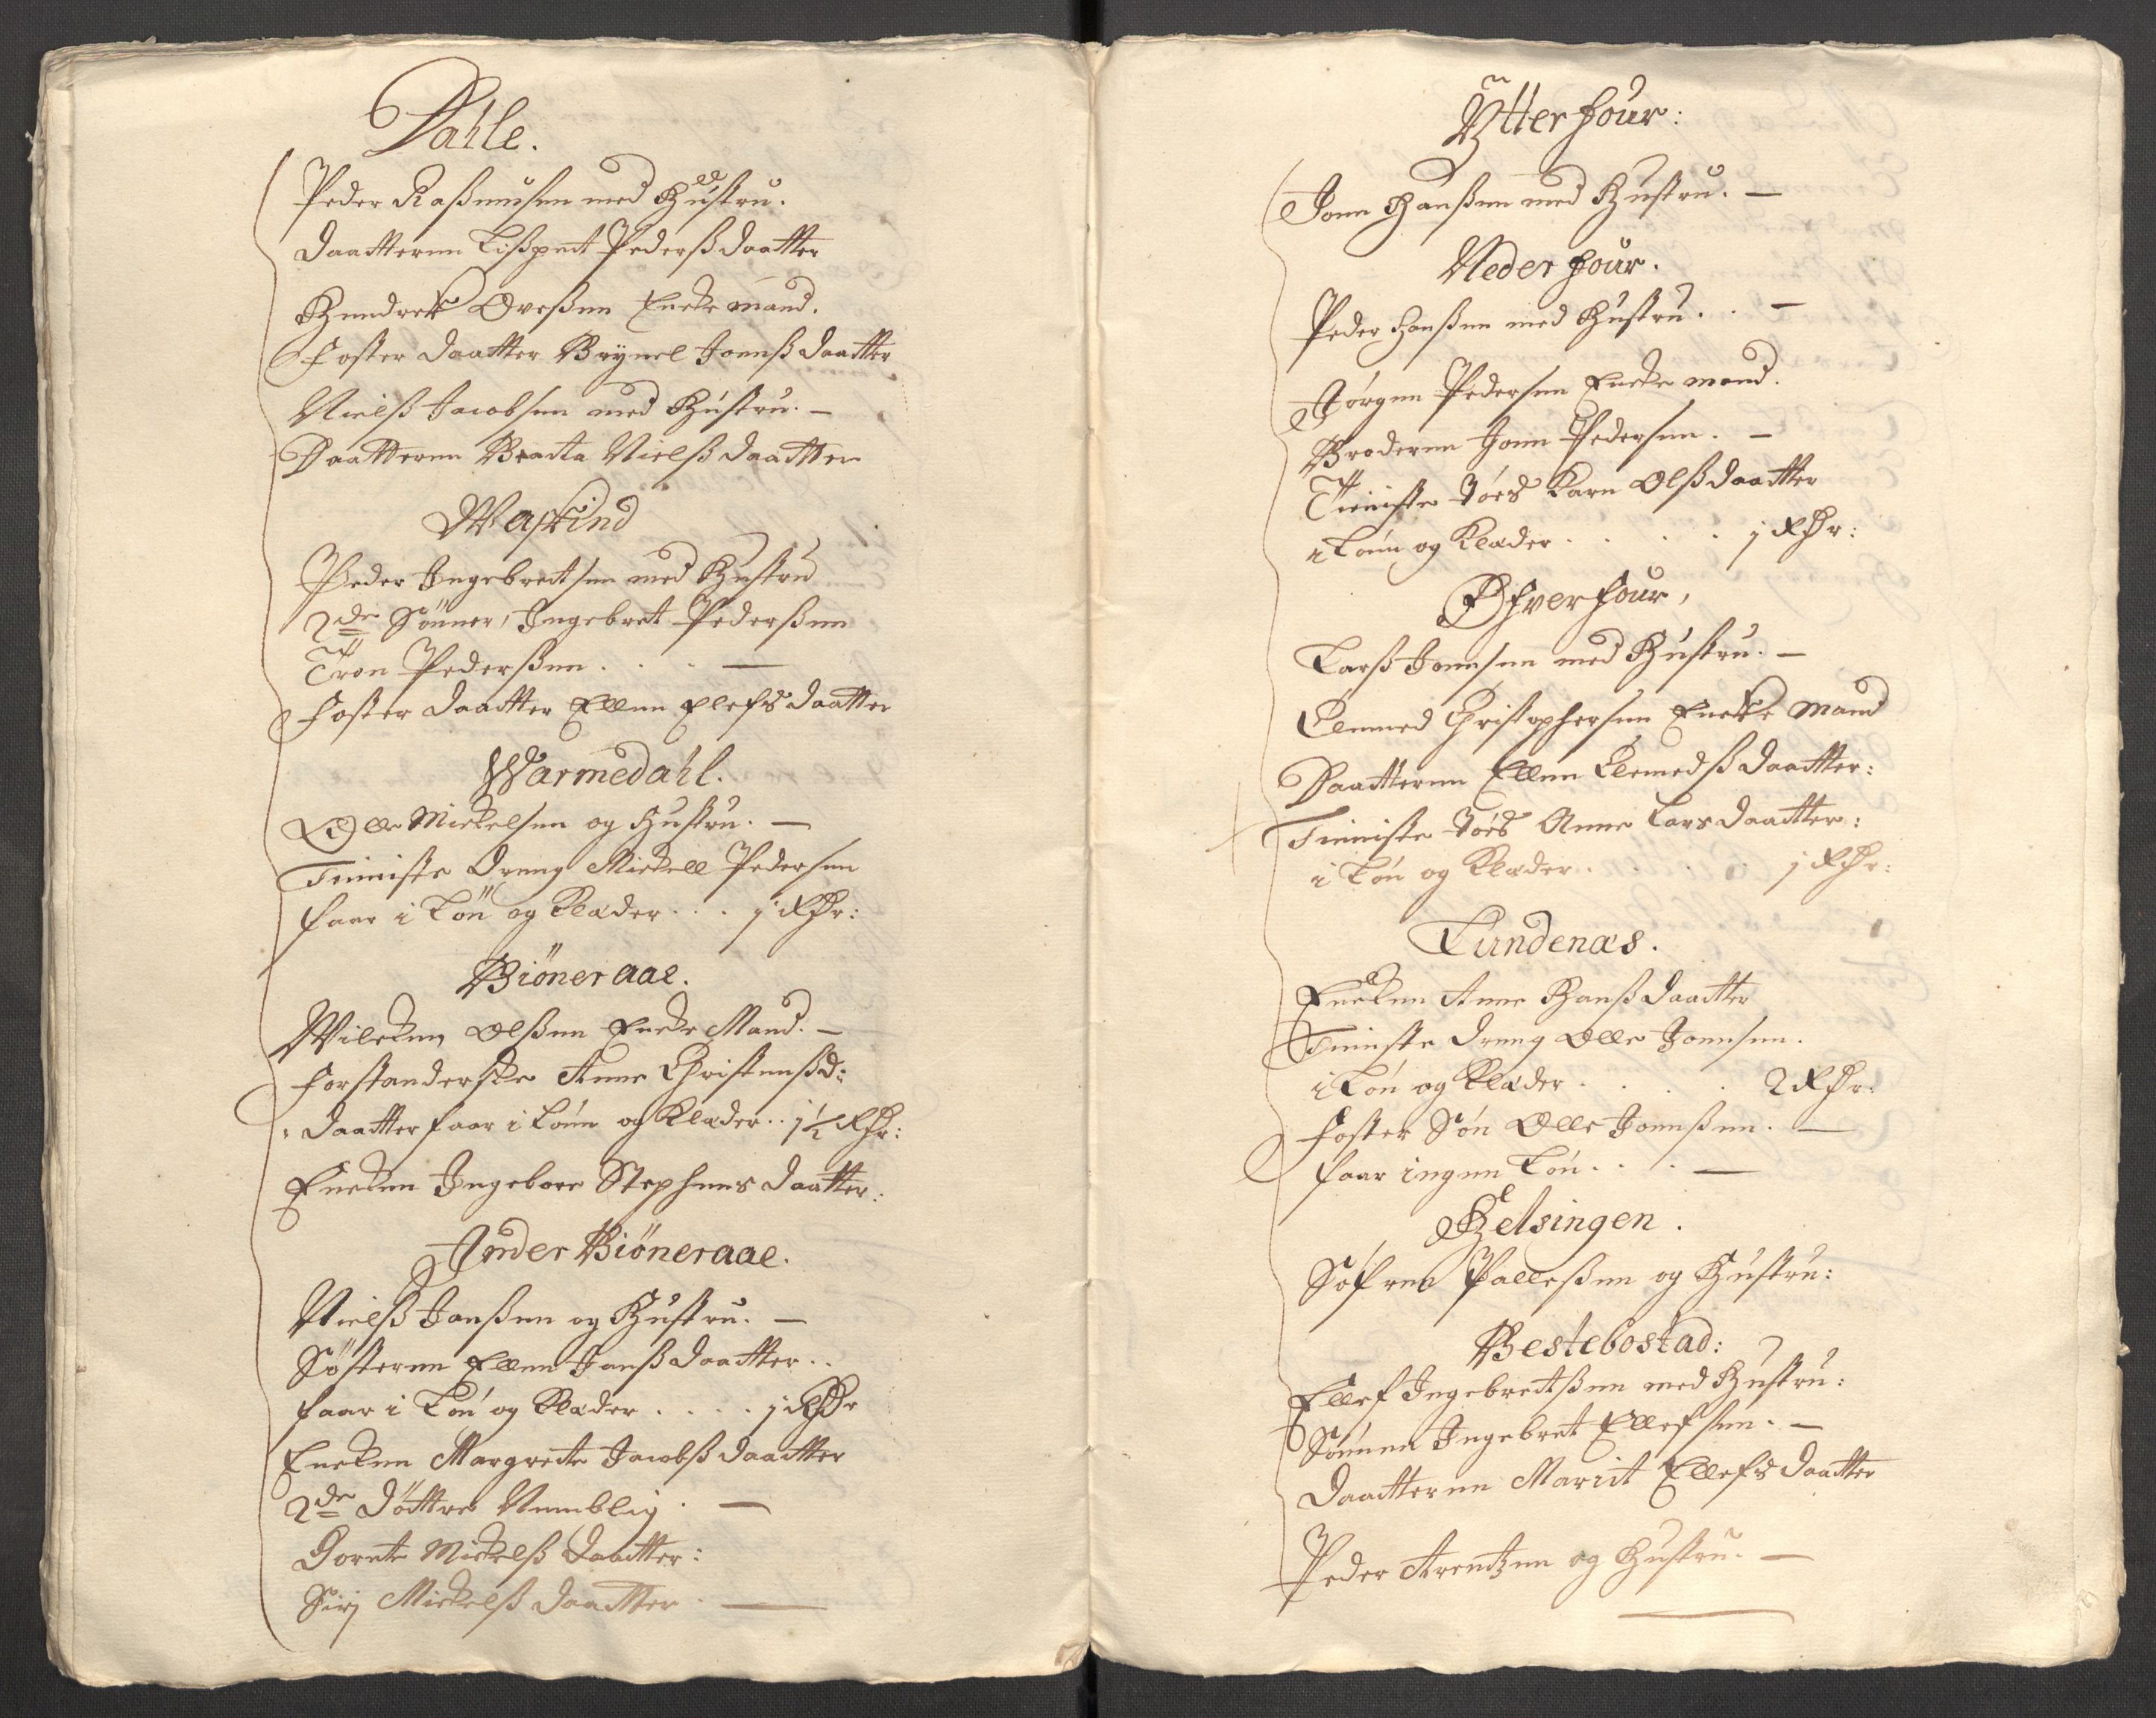 Dahle.
Peder Raßmusen med Hustru.
Daatteren Lißpeit Pederß daatter
Hendrek Oveßen Encke mand.
Foster daatter Brynel Jonnß daatter
Nielß Jacobsen med Hustru. —
Daatteren Beadta Nielß daatter
Waskind
Peder Ingebreitsen med Hustru
2de Sönner, Ingebret Pederßen
Tron Pederßen . . . —
Foster daatter Ellen Elefs daatter
Warmedahl.
Olle Mickelsen og Hustru. —
Tienniste Dreng Mickell Pedersen
faar i Lön og Klæder . . . 1 Rdr:
Biöneraae.
Wilcken Olßen Encke Mand. —
Forstanderske Anne Christenßd:
daatter faar i Lönn og Klæder . . 1½ Rdr:
Encken Ingebore Stephens daatter:
Inder Biöneraae.
Nielß Janßen og Hustru. —
Sösteren Ellen Janß daatter . .
faar i Lön og Klæder . . . . 1 Rdr
Encken Margrete Jacobß daatter
2de döttre Nemblig . —
Dorete Mickelß daatter:
Siri Mickelß daatter . —
Ytter hour:
Jonn Hanßen med Hustru. —
Neder hour.
Peder Hanßen med Hustru . . —
Jörgen Pedersen Encke mand.
Broderen Jonn Pedersen. —
Tieniste Töes Karn Olß daatter
i Lönn og Klæder . . . . . 1 Rdr:
Øfver hour,
Larß Jonnsen med Hustru. —
Clemmed Christophersen Encke Mand
Daatteren Ellen Clemedß daatter:
Tienniste Töes Anne Lars daatter:
i Lön og Klæder . . . . 1 Rdr:
Lundenæs.
Encken Anne Hanß daatter
Tienniste dreng Olle Jonnsen.
i Lön og Klæder . . . . 2 Rdr:
Foster Sön Olle Jonnßen. —
faar ingen Lön . . . —
Helsingen.
Söfren Palleßen og Hustru:
Bestebostad:
Ellef Ingebreitßen med Hustru:
Sönnen Ingebret Ellefsen. —
Daatteren Marit Ellefs daatter
Peder Arentzen og Hustru. —